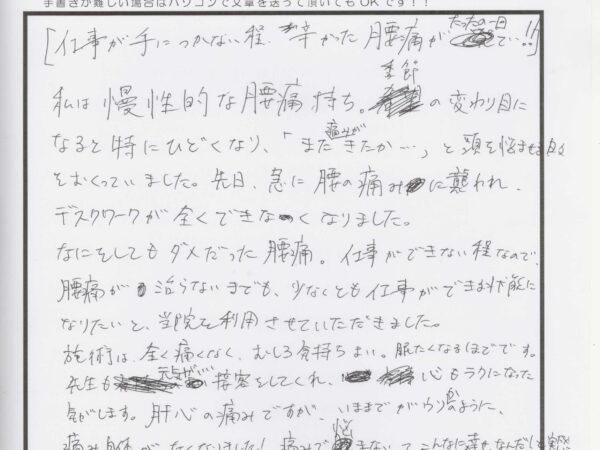 手書きが難しい場合はパソコンで文章を送って頂いてもOKです!!
[仕事が手につかない程、辛かった腰痛がたったの一日で…!!]
私は慢性的な腰痛持ち。季節の変わり目に
なると特にひどくなり、「また痛みがきたか…」と頭を悩ませる日々
をおくっていました。先日、急に腰の痛みに襲われ、
デスクワークが全くできなくなりました。
なにをしてもダメだった腰痛。仕事ができない程なので、
腰痛が治らないまでも、少なくとも仕事ができる状態に
なりたいと、当院を利用させていただきました。
施術は、全く痛くなく、むしろ気持ちよい。眠たくなるほどです。
先生も接客をしてくれ、心もラクになった
気がします。肝心の痛みですが、いままでがウソかのように、
痛み自体がなくなりました!痛みで悩まないってこんなに幸せなんだと実感